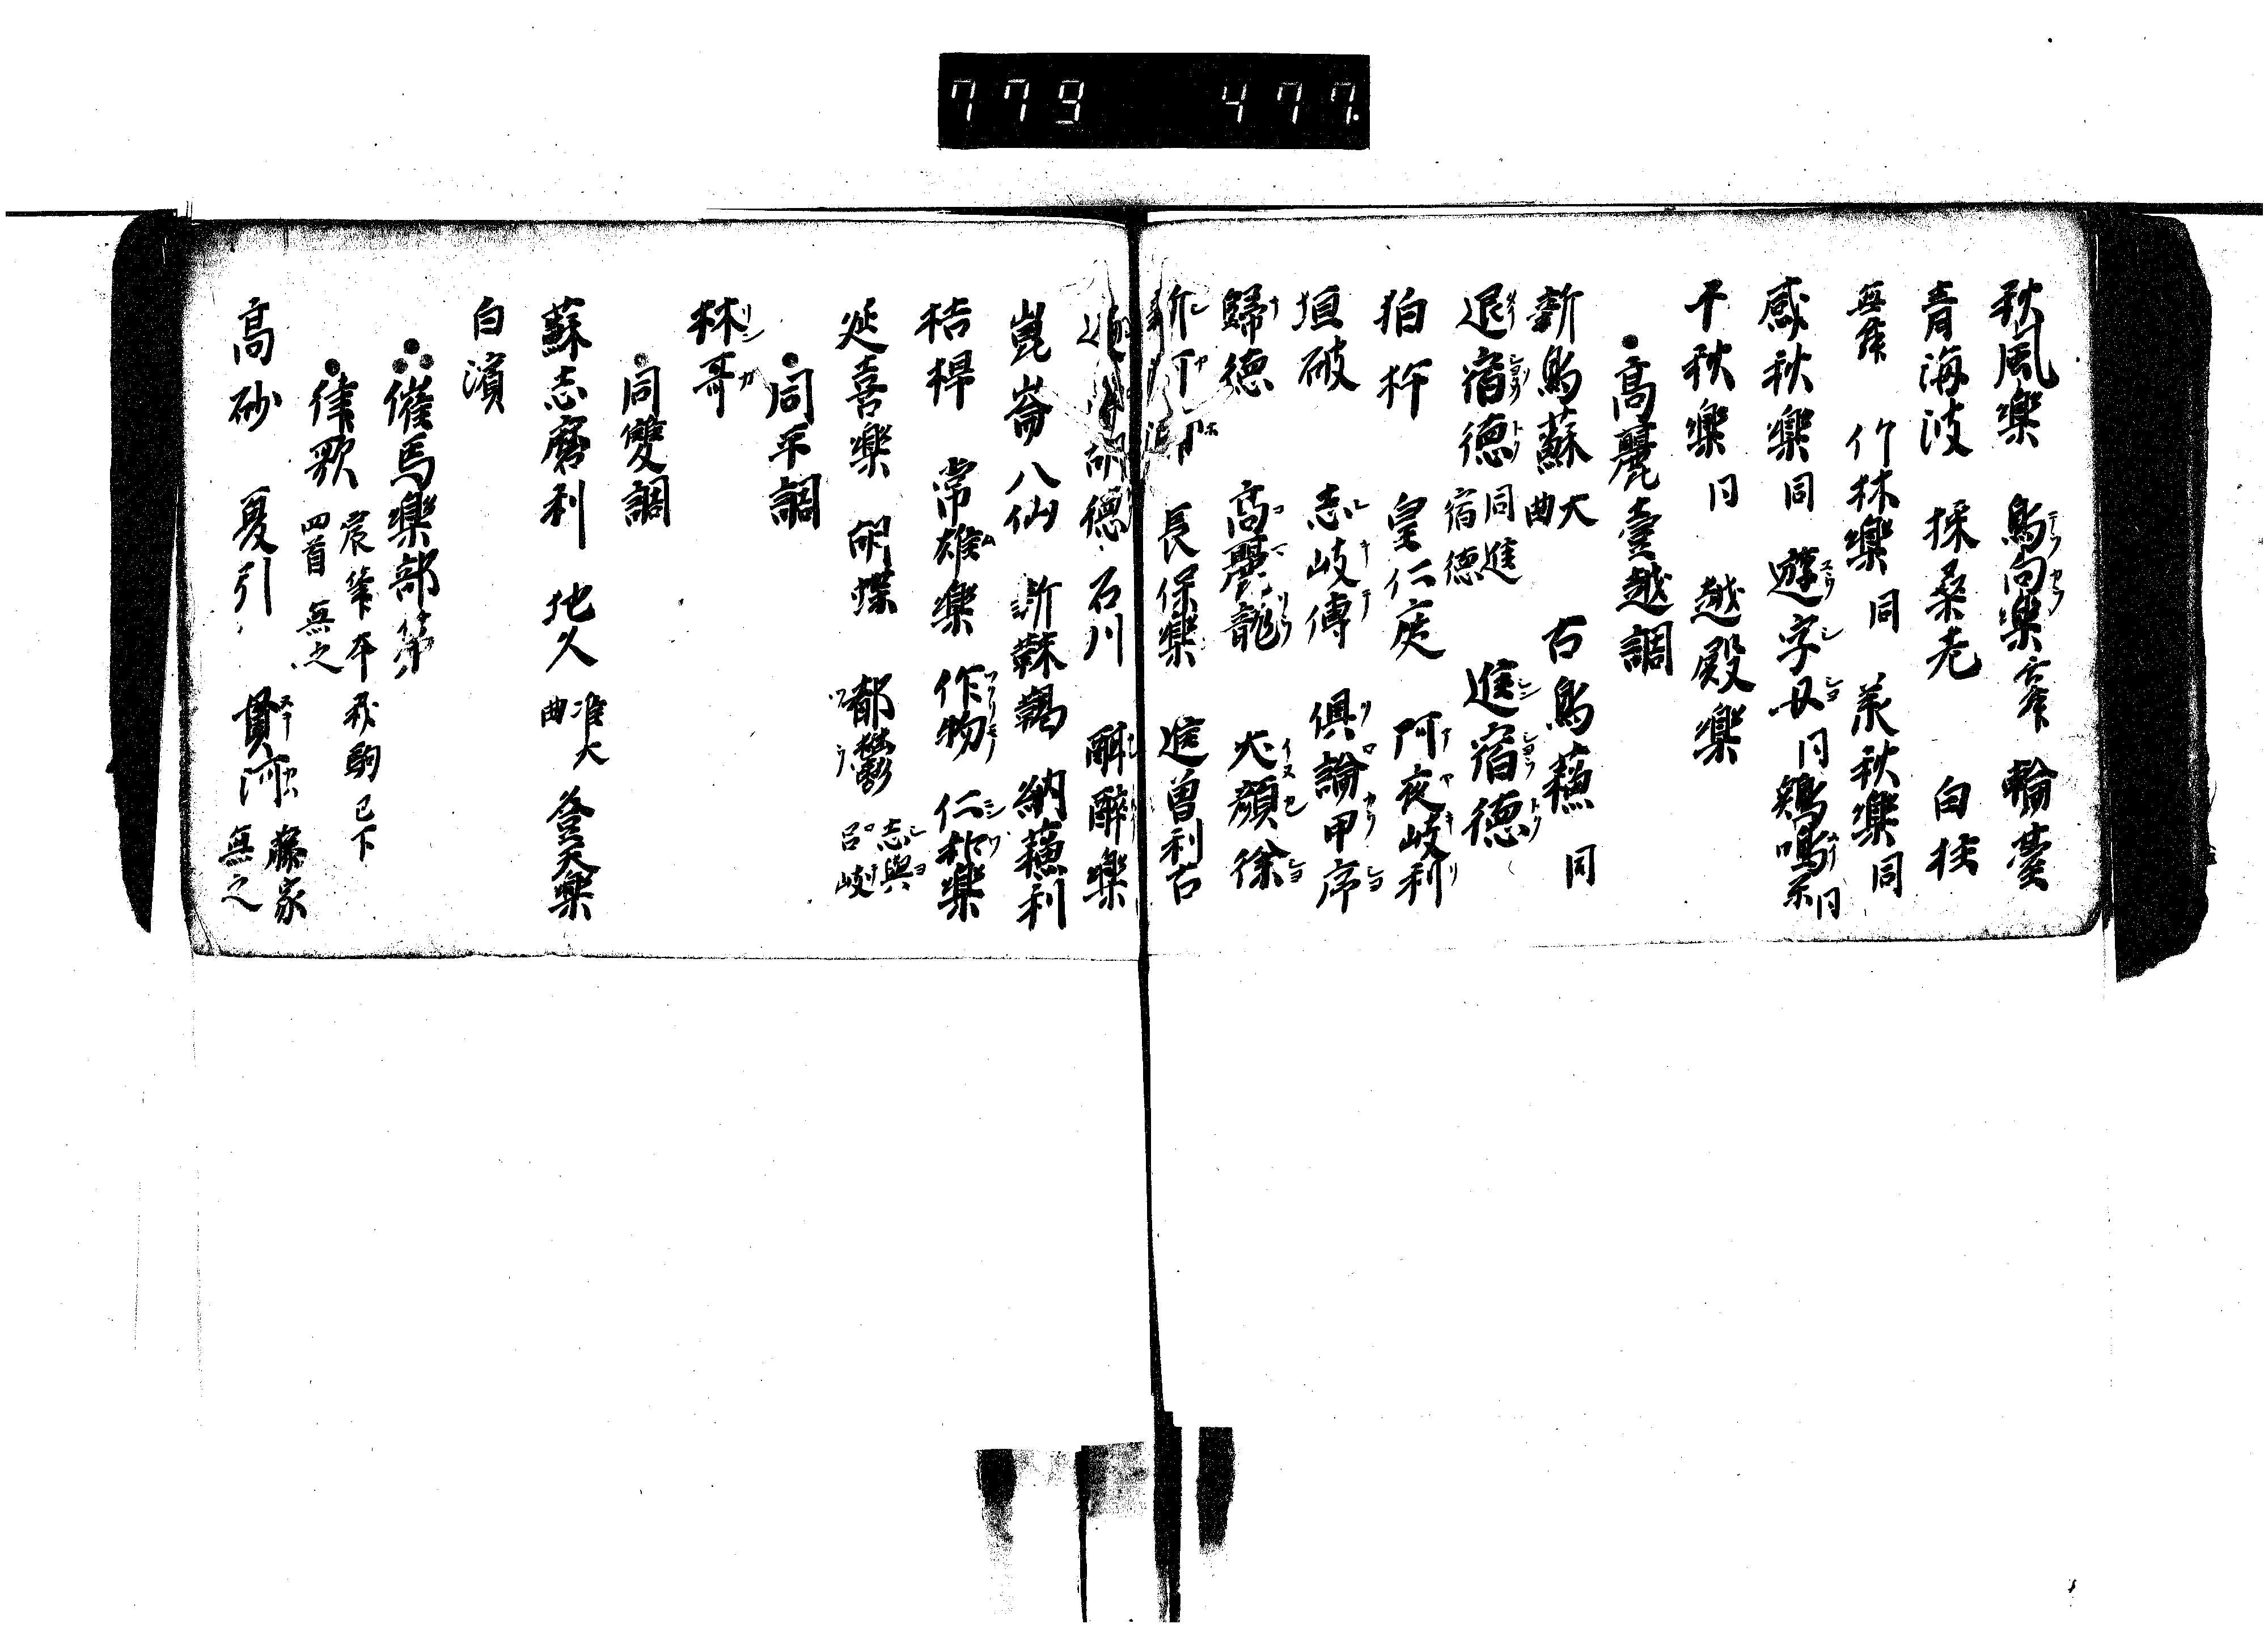 779 477.
秋風樂 鳥向樂 輪臺
青海波 採桑老 白柱
無舞 竹林樂 同 承秋樂 同
感秋樂 同 遊字女 同 鶏鳴 同
千秋樂 同 越殿樂
高麗壹越調
新鳥蘇 大曲 古鳥蘇 同
退宿德 同進宿德 進宿德
狛桙 皇仁庭 阿夜岐利
垣破 志岐傳 俱論甲序
歸德 高麗龍 犬顔徐
新 長保樂 進曽利古
胡德 石川 酣醉樂
崑崙八仙 新靺鞨 納蘇利
桔桿 常雄樂 作物 仁和樂
延喜樂 胡蝶 都鬱 志與呂岐
同平調
林哥
同雙調
蘇志磨利 地久 准大曲 登天樂
白濱
催馬樂部第
律歌 宸筆本 我駒已下四首無之
高砂 夏引 貫河 藤家無之